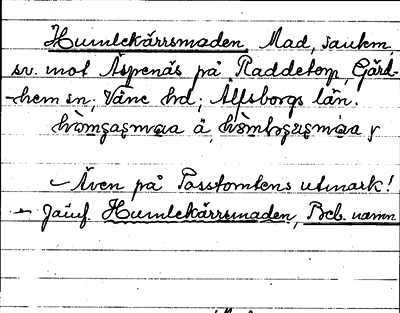 Humlekärrsmaden, Mad, saukm,
sv. mot Äspenäs på Raddetorp, Gärd-
hem sn; Väne hd; Älfsborgs län.
ä
– Även på Tasstomtens utmark!
– Jämf. Humlekärrsmaden, Beb. namn